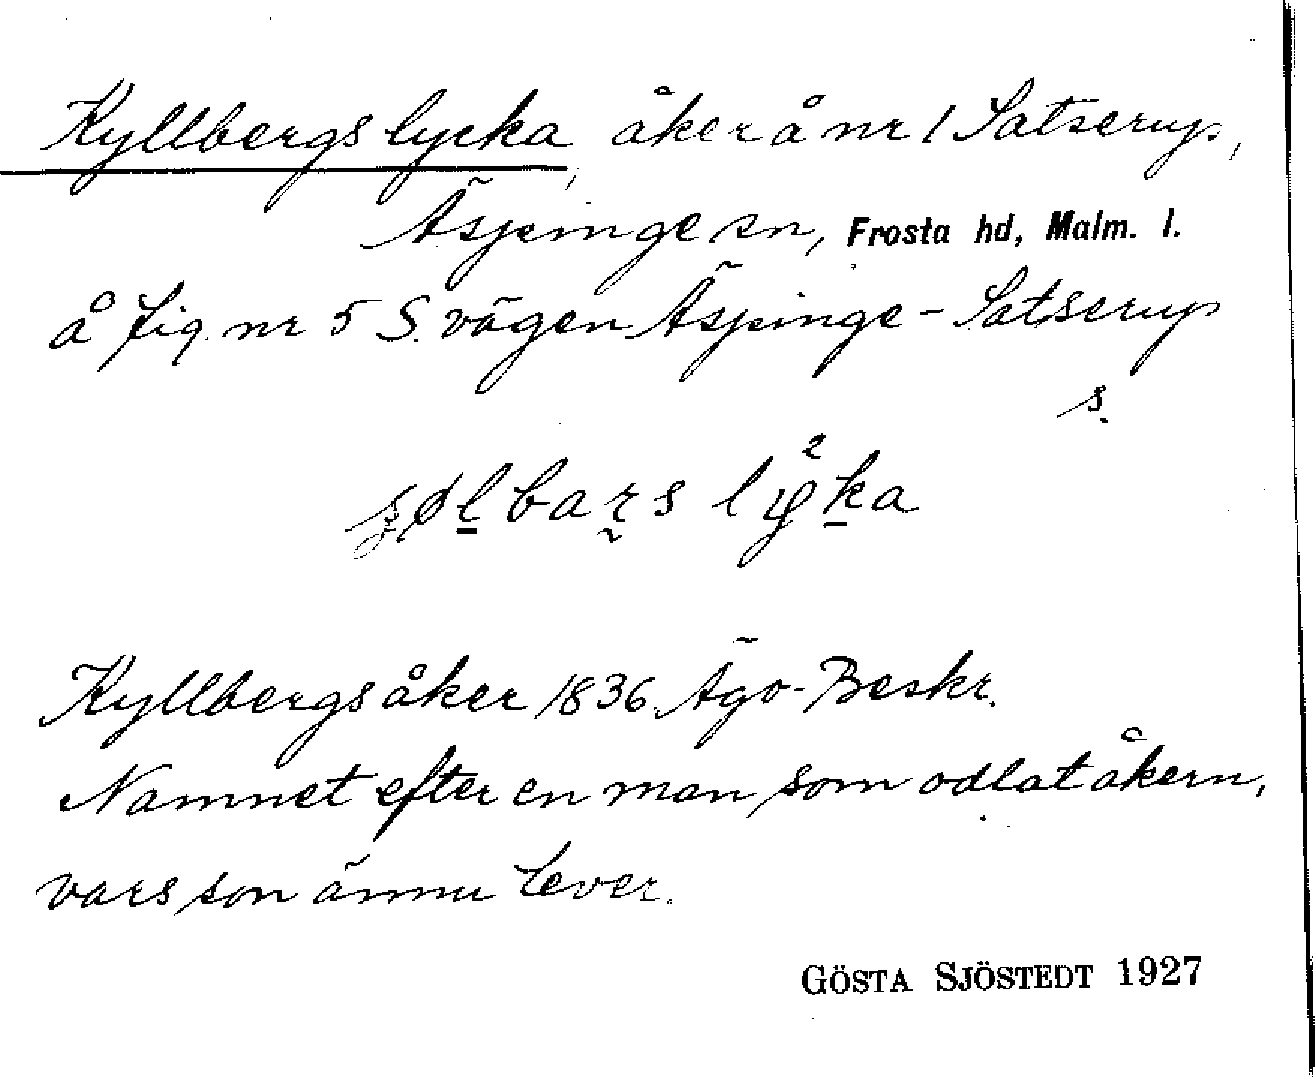 Kyllbergslycka, åker å nr 1 Satserup,
Äspinge sn, Frosta hd, Malm. l.
å fig. nr 5 S. vägen Äspinge - Satserup
s
Kyllbergsåker 1836 Ägo-Beskr.
Namnet efter en man, som odlat åkern,
vars son ännu lever.
GÖSTA SJÖSTEDT 1927